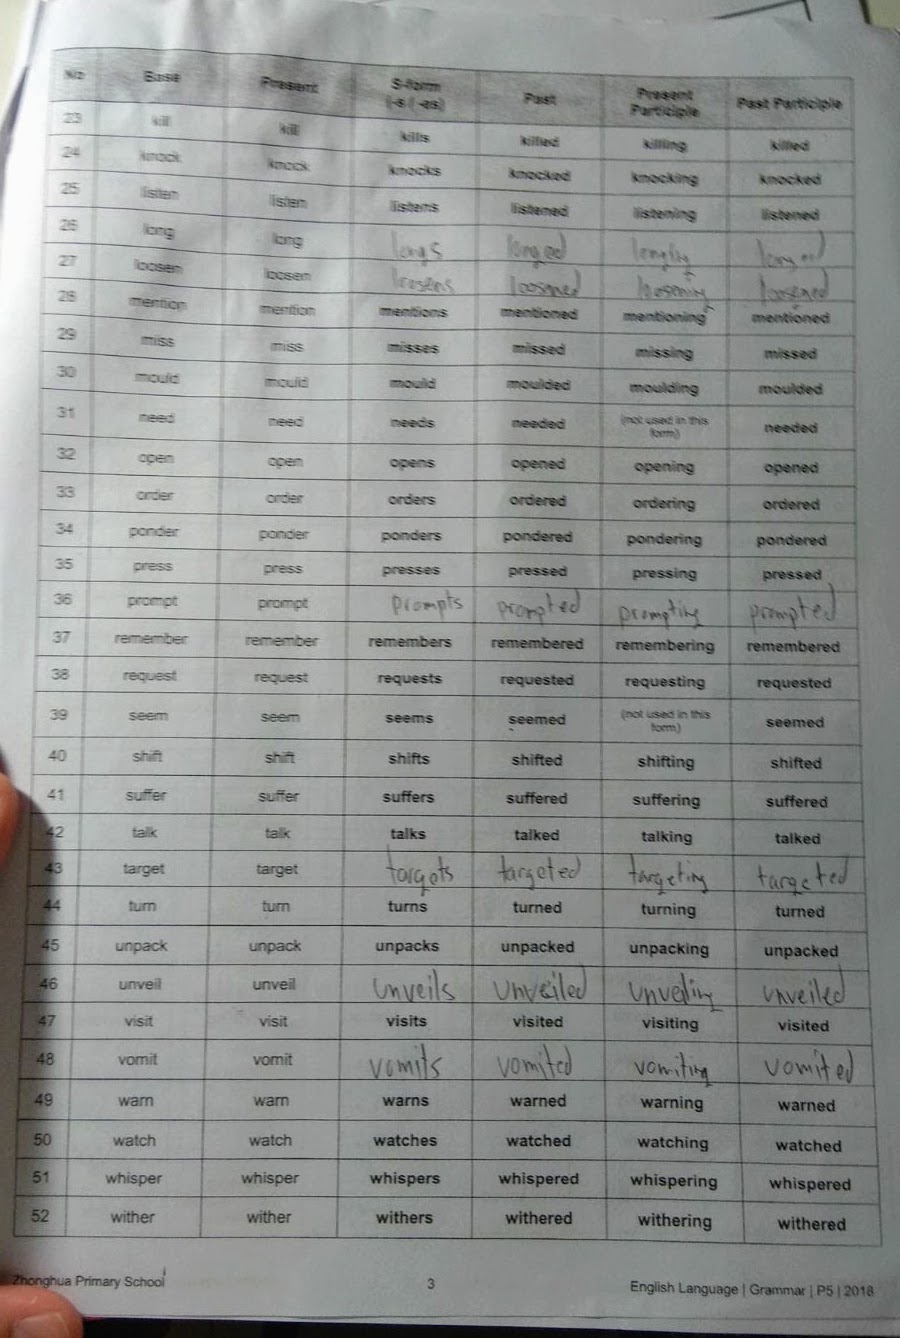 No Base Present S-form (-s / -es) Past Present Participle Past Participle
23 kill kill kills killed killing killed
24 knock knock knocks knocked knocking knocked
25 listen listen listens listened listening listened
26 long long longs longed longing longed
27 loosen loosen loosens loosened loosening loosened
28 mention mention mentions mentioned mentioning mentioned
29 miss miss misses missed missing missed
30 mould mould mould moulded moulding moulded
31 need need needs needed (not used in this form) needed
32 open open opens opened opening opened
33 order order orders ordered ordering ordered
34 ponder ponder ponders pondered pondering pondered
35 press press presses pressed pressing pressed
36 prompt prompt prompts prompted prompting prompted
37 remember remember remembers remembered remembering remembered
38 request request requests requested requesting requested
39 seem seem seems seemed (not used in this form) seemed
40 shift shift shifts shifted shifting shifted
41 suffer suffer suffers suffered suffering suffered
42 talk talk talks talked talking talked
43 target target targets targeted targeting targeted
44 turn turn turns turned turning turned
45 unpack unpack unpacks unpacked unpacking unpacked
46 unveil unveil unveils unveiled unveiling unveiled
47 visit visit visits visited visiting visited
48 vomit vomit vomits vomited vomiting vomited
49 warn warn warns warned warning warned
50 watch watch watches watched watching watched
51 whisper whisper whispers whispered whispering whispered
52 wither wither withers withered withering withered
Zhonghua Primary School 3 English Language | Grammar | P5 | 2018